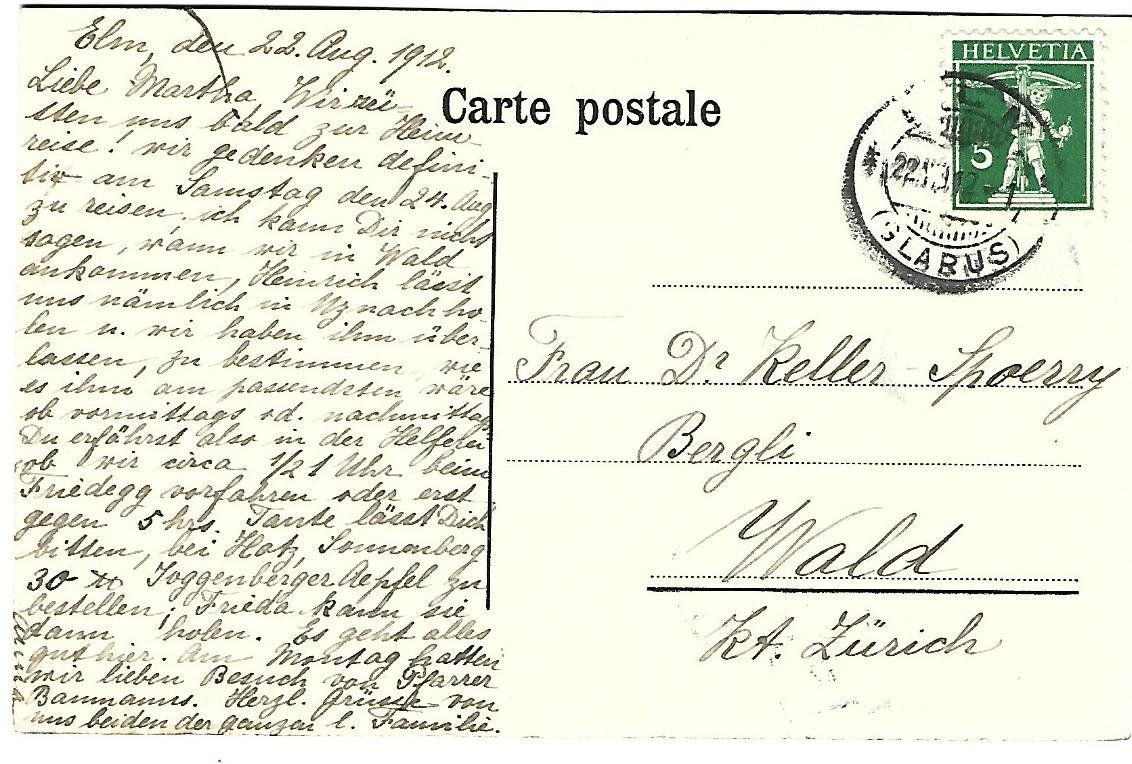 Elm, den 22. Aug. 1912.
Liebe Martha, Wir rü
sten uns bald zur Heim
reise! wir gedenken defini-
tiv am Samstag den 24. Aug
zu reisen. ich kann Dir nicht
sagen, wann wir in Wald
ankommen, Heinrich lässt
uns nämlich in Uznach ho-
len u. wir haben ihm über-
lassen, zu bestimmen, wie
es ihm am passendsten wäre
ob vormittags od. nachmittags
Du erfährst also in der Helferei
ob wir circa 1/2 1 Uhr beim
Friedegg vorfahren oder erst
gegen 5 hrs. Tante lässt Dich
bitten, bei Hotz, Sonnenberg
30 Toggenberger Aepfel zu
bestellen; Frieda kann sie
dann holen. Es geht alles
gut hier. Am Montag hatten
wir lieben Besuch von Pfarrer
Baumanns. Herzl. Grüsse von
uns beiden der ganzen l. Familie.
Carte postale
HELVETIA
5
22.
(GLARUS)
Frau Dr Keller-Spoerry
Bergli
Wald
Kt. Zürich